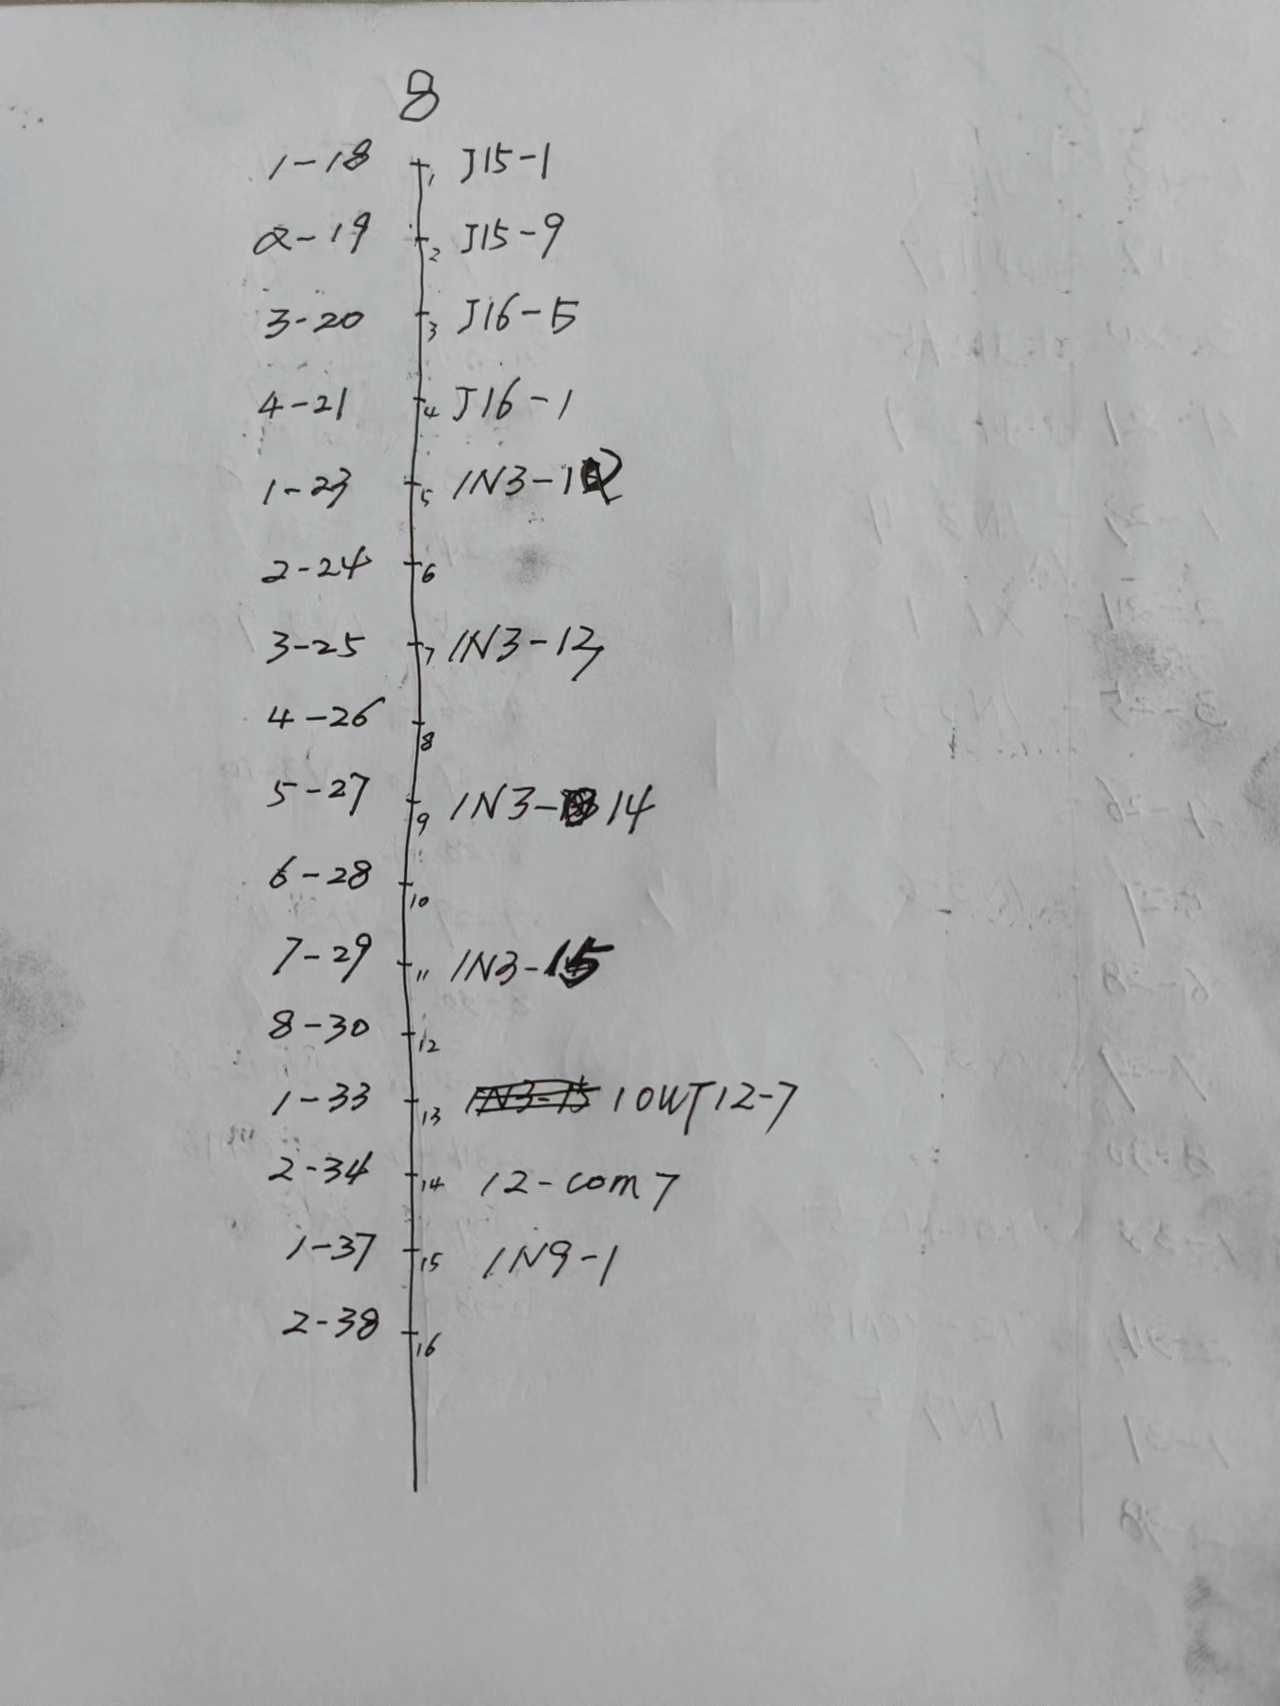 8
1-18 1 J15-1
2-19 2 J15-9
3-20 3 J16-5
4-21 4 J16-1
1-23 5 IN3-12
2-24 6
3-25 7 IN3-13
4-26 8
5-27 9 IN3-14
6-28 10
7-29 11 IN3-15
8-30 12
1-33 13 IN3-15 IOUT12-7
2-34 14 12-com7
1-37 15 IN9-1
2-38 16